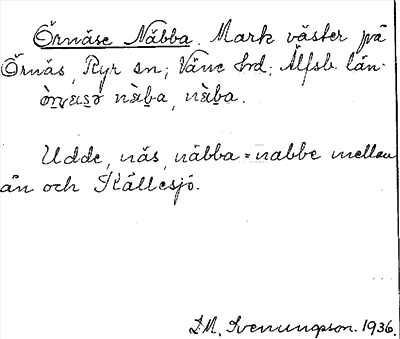 Örnäse Näbba. Mark väster på
Örnäs, Ryr sn; Väne hrd; Älfsb. län.
näba, näba.
Udde, näs, näbba = nabbe mellan
ån och Källesjö.
D.M. Svenungson. 1936.